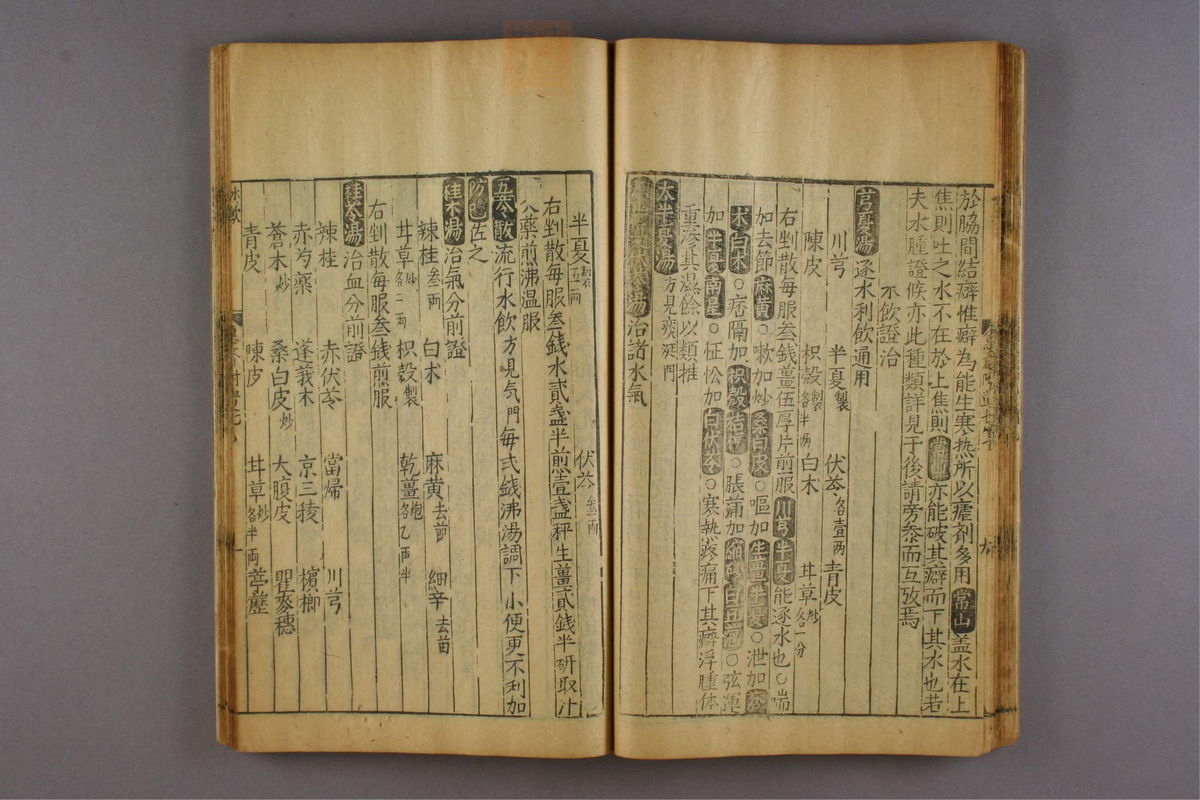 於脇間結癖惟癖為能生寒热所以瘧剤多用常山盖水在上
焦則吐之水不在於上焦則常山亦能破其癖而下其水也若
夫水腫證候亦此種類詳見于後請旁叅而互攷焉
水飲證治
芎夏湯逐水利飲通用
川芎 半夏製 伏苓各壹两 青皮
陳皮 枳殻製各半两 白术 甘草炒各一分
右剉散每服叁錢薑伍厚片煎服川芎半夏能逐水也○喘
加去節麻黄○嗽加炒桑白皮○嘔加生薑半夏○泄加苍
术白术○痞隔加枳殻桔梗○脹蒲加縮砂白豆蔻○弦運
加半夏南星○怔忪加白伏苓○寒熱疼痛下其癖浮腫体
重滲其濕餘以類推
大半夏湯方見痰涎門
小半夏伏苓湯治諸水氣
半夏製五两 伏苓叁两
右剉散每服叁錢水貳盏半煎壹盏秤生薑貳錢半研取汁
入藥煎沸温服
五苓散流行水飲方見気門每弍錢沸湯調下小便更不利加
防已佐之
桂术湯治氣分前證
辣桂叁两 白术 麻黄去節 細辛去苗
甘草炒各二两 枳殻製 乾薑炮各乙两半
右剉散每服叁錢煎服
桂苓湯治血分前證
辣桂 赤伏苓 當帰 川芎
赤芍藥 蓬莪术 京三稜 檳榔
蒼术炒 桑白皮炒 大腹皮 瞿麥穗
青皮 陳皮 甘草炒各半两 葶藶
水飲